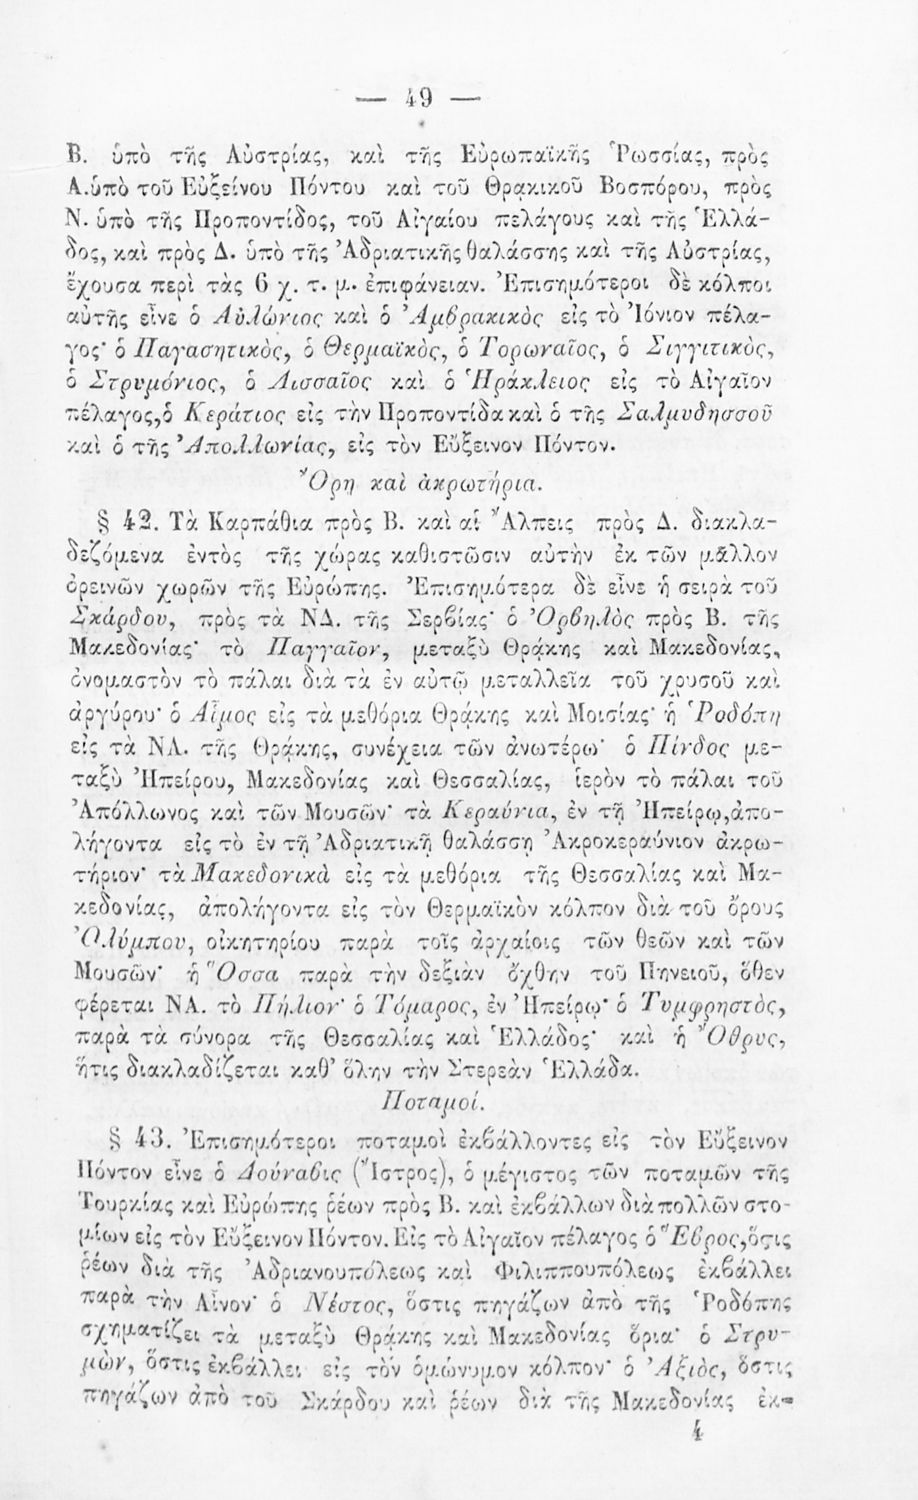 — 49 —
Β. ὑπὸ τῆς Αὐστρίας, καὶ τῆς Εὐρωπαϊκῆς Ῥωσσίας, πρὸς
Α.ὑπὸ τοῦ Εὐξείνου Πόντου καὶ τοῦ Θρακικοῦ Βοσπόρου, πρὸς
Ν. ὑπὸ τῆς Προποντίδος, τοῦ Αἰγαίου πελάγους καὶ τῆς Ἑλλά-
δος, καὶ πρὸς Δ. ὑπὸ τῆς Ἀδριατικῆς θαλάσσης καὶ τῆς Αὐστρίας,
ἔχουσα περὶ τὰς 6 χ. τ. μ. ἐπιφάνειαν. Ἐπισημότεροι δὲ κόλποι
αὐτῆς εἶνε ὁ Αὐλώνιος καὶ ὁ Ἀμβρακικὸς εἰς τὸ Ἰόνιον πέλα-
γος· ὁ Παγασητικὸς, ὁ Θερμαϊκὸς, ὁ Τορωναῖος, ὁ Σιγγιτικὸς,
ὁ Στρυμόνιος, ὁ Λισσαῖος καὶ ὁ Ἡράκλειος εἰς τὸ Αἰγαῖον
πέλαγος,ὁ Κεράτιος εἰς τὴν Προποντίδα καὶ ὁ τῆς Σαλμυδησσοῦ
καὶ ὁ τῆς Ἀπολλωνίας, εἰς τὸν Εὔξεινον Πόντον.
Ὄρη καὶ ἀκρωτήρια.
§ 42. Τὰ Καρπάθια πρὸς Β. καὶ αἱ Ἄλπεις πρὸς Δ. διακλα-
δεζόμενα ἐντὸς τῆς χώρας καθιστῶσιν αὐτὴν ἐκ τῶν μᾶλλον
ὀρεινῶν χωρῶν τῆς Εὐρώπης. Ἐπισημότερα δὲ εἶνε ἡ σειρὰ τοῦ
Σκάρδου, πρὸς τὰ ΝΔ. τῆς Σερβίας· ὁ Ὀρβηλὸς πρὸς Β. τῆς
Μακεδονίας· τὸ Παγγαῖον, μεταξὺ Θράκης καὶ Μακεδονίας,
ὀνομαστὸν τὸ πάλαι διὰ τὰ ἐν αὐτῷ μεταλλεῖα τοῦ χρυσοῦ καὶ
ἀργύρου· ὁ Αἷμος εἰς τὰ μεθόρια Θράκης καὶ Μοισίας· ἡ Ῥοδόπη
εἰς τὰ ΝΔ. τῆς Θράκης, συνέχεια τῶν ἀνωτέρω· ὁ Πίνδος με-
ταξὺ Ἠπείρου, Μακεδονίας καὶ Θεσσαλίας, ἱερὸν τὸ πάλαι τοῦ
Ἀπόλλωνος καὶ τῶν Μουσῶν· τὰ Κεραύνια, ἐν τῇ Ἠπείρῳ,ἀπο-
λήγοντα εἰς τὸ ἐν τῇ Ἀδριατικῇ θαλάσσῃ Ἀκροκεραύνιον ἀκρω-
τήριον· τὰ Μακεδονικὰ εἰς τὰ μεθόρια τῆς Θεσσαλίας καὶ Μα-
κεδονίας, ἀπολήγοντα εἰς τὸν Θερμαϊκὸν κόλπον διὰ τοῦ ὄρους
Ὀλύμπου, οἰκητηρίου παρὰ τοῖς ἀρχαίοις τῶν θεῶν καὶ τῶν
Μουσῶν· ἡ Ὄσσα παρὰ τὴν δεξιὰν ὄχθην τοῦ Πηνειοῦ, ὅθεν
φέρεται ΝΑ. τὸ Πήλιον· ὁ Τόμαρος, ἐν Ἠπείρῳ· ὁ Τυμφρηστὸς,
παρὰ τὰ σύνορα τῆς Θεσσαλίας καὶ Ἑλλάδος· καὶ ἡ Ὄθρυς,
ἥτις διακλαδίζεται καθ' ὅλην τὴν Στερεὰν Ἑλλάδα.
Ποταμοί.
§ 43. Ἐπισημότεροι ποταμοὶ ἐκβάλλοντες εἰς τὸν Εὔξεινον
Πόντον εἶνε ὁ Δούναβις (Ἴστρος), ὁ μέγιστος τῶν ποταμῶν τῆς
Τουρκίας καὶ Εὐρώπης ῥέων πρὸς Β. καὶ ἐκβάλλων διὰ πολλῶν στο-
μίων εἰς τὸν Εὔξεινον Πόντον. Εἰς τὸ Αἰγαῖον πέλαγος ὁ Ἕβρος,ὅςτις
ῥέων διὰ τῆς Ἀδριανουπόλεως καὶ Φιλιππουπόλεως ἐκβάλλει
παρὰ τὴν Αἶνον· ὁ Νέστος, ὅστις πηγάζων ἀπὸ τῆς Ῥοδόπης
σχηματίζει τὰ μεταξὺ Θράκης καὶ Μακεδονίας ὅρια· ὁ Στρυ-
μὼν, ὅστις ἐκβάλλει εἰς τὸν ὁμώνυμον κόλπον· ὁ Ἀξιὸς, ὅστις
πηγάζων ἀπὸ τοῦ Σκάρδου καὶ ῥέων διὰ τῆς Μακεδονίας ἐκ-
4